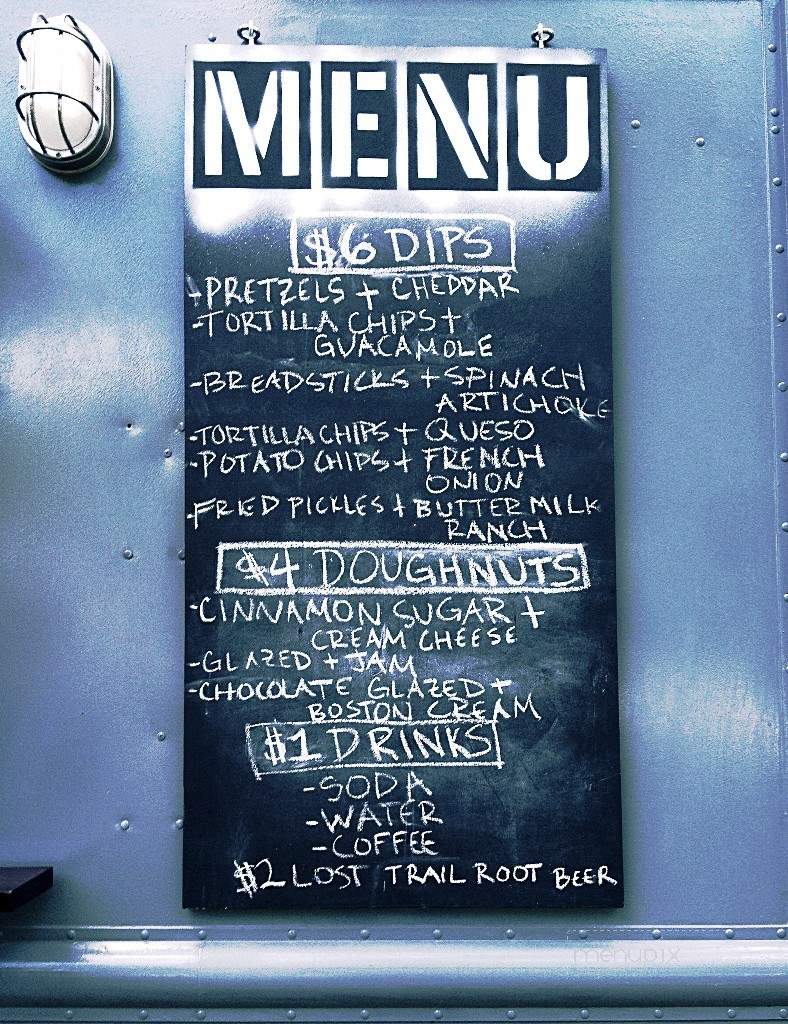 MENU
$6 DIPS
-PRETZELS + CHEDDAR
-TORTILLA CHIPS +
GUACAMOLE
-BREADSTICKS + SPINACH
ARTICHOKE
-TORTILLA CHIPS + QUESO
-POTATO CHIPS + FRENCH
ONION
-FRIED PICKLES + BUTTERMILK
RANCH
$4 DOUGHNUTS
-CINNAMON SUGAR +
CREAM CHEESE
-GLAZED + JAM
-CHOCOLATE GLAZED +
BOSTON CREAM
$1 DRINKS
-SODA
-WATER
-COFFEE
$2 LOST TRAIL ROOT BEER
menupix